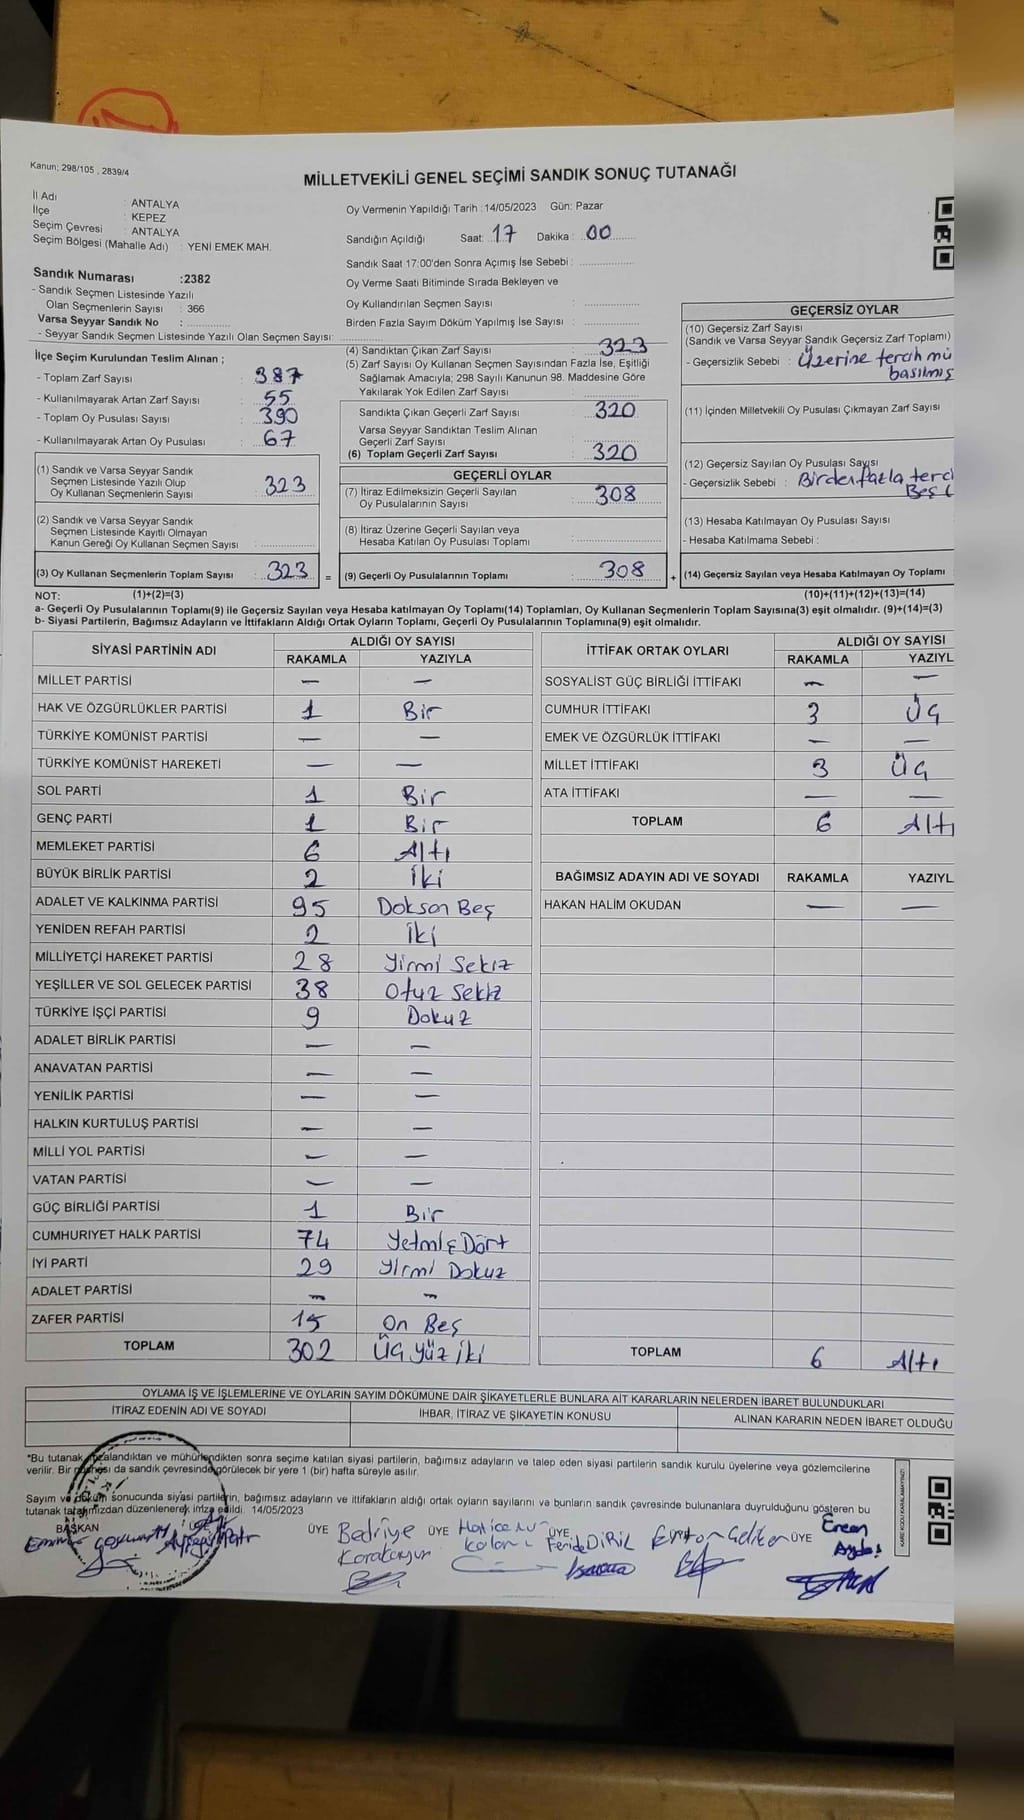 Kanun; 298/105 , 2839/4
MİLLETVEKİLİ GENEL SEÇİMİ SANDIK SONUÇ TUTANAĞI
İl Adı : ANTALYA
İlçe : KEPEZ
Seçim Çevresi : ANTALYA
Seçim Bölgesi (Mahalle Adı) : YENİ EMEK MAH.
Sandık Numarası :2382
- Sandık Seçmen Listesinde Yazılı
Olan Seçmenlerin Sayısı : 366
Varsa Seyyar Sandık No :
- Seyyar Sandık Seçmen Listesinde Yazılı Olan Seçmen Sayısı:
İlçe Seçim Kurulundan Teslim Alınan ;
- Toplam Zarf Sayısı : 387
- Kullanılmayarak Artan Zarf Sayısı : 55
- Toplam Oy Pusulası Sayısı : 390
- Kullanılmayarak Artan Oy Pusulası : 67
(1) Sandık ve Varsa Seyyar Sandık
Seçmen Listesinde Yazılı Olup
Oy Kullanan Seçmenlerin Sayısı : 323
(2) Sandık ve Varsa Seyyar Sandık
Seçmen Listesinde Kayıtlı Olmayan
Kanun Gereği Oy Kullanan Seçmen Sayısı :
(3) Oy Kullanan Seçmenlerin Toplam Sayısı : 323 =
Oy Vermenin Yapıldığı Tarih :14/05/2023 Gün: Pazar
Sandığın Açıldığı Saat: 17 Dakika : 00
Sandık Saat 17:00'den Sonra Açımış İse Sebebi :
Oy Verme Saati Bitiminde Sırada Bekleyen ve
Oy Kullandırılan Seçmen Sayısı :
Birden Fazla Sayım Döküm Yapılmış İse Sayısı :
(4) Sandıktan Çıkan Zarf Sayısı : 323
(5) Zarf Sayısı Oy Kullanan Seçmen Sayısından Fazla İse, Eşitliği
Sağlamak Amacıyla; 298 Sayılı Kanunun 98. Maddesine Göre
Yakılarak Yok Edilen Zarf Sayısı :
Sandıkta Çıkan Geçerli Zarf Sayısı : 320
Varsa Seyyar Sandıktan Teslim Alınan
Geçerli Zarf Sayısı :
(6) Toplam Geçerli Zarf Sayısı : 320
GEÇERLİ OYLAR
(7) İtiraz Edilmeksizin Geçerli Sayılan
Oy Pusulalarının Sayısı : 308
(8) İtiraz Üzerine Geçerli Sayılan veya
Hesaba Katılan Oy Pusulası Toplamı :
(9) Geçerli Oy Pusulalarının Toplamı : 308 +
GEÇERSİZ OYLAR
(10) Geçersiz Zarf Sayısı
(Sandık ve Varsa Seyyar Sandık Geçersiz Zarf Toplamı)
- Geçersizlik Sebebi : Üzerine tercih mü
basılmış
(11) İçinden Milletvekili Oy Pusulası Çıkmayan Zarf Sayısı
(12) Geçersiz Sayılan Oy Pusulası Sayısı
- Geçersizlik Sebebi : Birden fazla terci
(13) Hesaba Katılmayan Oy Pusulası Sayısı
- Hesaba Katılmama Sebebi :
(14) Geçersiz Sayılan veya Hesaba Katılmayan Oy Toplamı
NOT: (1)+(2)=(3) (10)+(11)+(12)+(13)=(14)
a- Geçerli Oy Pusulalarının Toplamı(9) ile Geçersiz Sayılan veya Hesaba katılmayan Oy Toplamı(14) Toplamları, Oy Kullanan Seçmenlerin Toplam Sayısına(3) eşit olmalıdır. (9)+(14)=(3)
b- Siyasi Partilerin, Bağımsız Adayların ve İttifakların Aldığı Ortak Oyların Toplamı, Geçerli Oy Pusulalarının Toplamına(9) eşit olmalıdır.
SİYASİ PARTİNİN ADI ALDIĞI OY SAYISI
RAKAMLA YAZIYLA
MİLLET PARTİSİ — —
HAK VE ÖZGÜRLÜKLER PARTİSİ 1 Bir
TÜRKİYE KOMÜNİST PARTİSİ — —
TÜRKİYE KOMÜNİST HAREKETİ — —
SOL PARTİ 1 Bir
GENÇ PARTİ 1 Bir
MEMLEKET PARTİSİ 6 Altı
BÜYÜK BİRLİK PARTİSİ 2 İki
ADALET VE KALKINMA PARTİSİ 95 Dokson Beş
YENİDEN REFAH PARTİSİ 2 İki
MİLLİYETÇİ HAREKET PARTİSİ 28 Yirmi Sekiz
YEŞİLLER VE SOL GELECEK PARTİSİ 38 Otuz Sekiz
TÜRKİYE İŞÇİ PARTİSİ 9 Dokuz
ADALET BİRLİK PARTİSİ — —
ANAVATAN PARTİSİ — —
YENİLİK PARTİSİ — —
HALKIN KURTULUŞ PARTİSİ — —
MİLLİ YOL PARTİSİ — —
VATAN PARTİSİ — —
GÜÇ BİRLİĞİ PARTİSİ 1 Bir
CUMHURIYET HALK PARTİSİ 74 Yetmiş Dört
İYİ PARTİ 29 Yirmi Dokuz
ADALET PARTİSİ — —
ZAFER PARTİSİ 15 On Beş
TOPLAM 302 Üç yüz iki
İTTİFAK ORTAK OYLARI ALDIĞI OY SAYISI
RAKAMLA YAZIYL
SOSYALIST GÜÇ BİRLİĞİ İTTİFAKI — —
CUMHUR İTTİFAKI 3 Üç
EMEK VE ÖZGÜRLÜK İTTİFAKI — —
MİLLET İTTİFAKI 3 Üç
ATA İTTİFAKI — —
TOPLAM 6 Altı
BAĞIMSIZ ADAYIN ADI VE SOYADI RAKAMLA YAZIYL
HAKAN HALİM OKUDAN — —
TOPLAM 6 Altı
OYLAMA İŞ VE İŞLEMLERİNE VE OYLARIN SAYIM DÖKÜMÜNE DAİR ŞİKAYETLERLE BUNLARA AİT KARARLARIN NELERDEN İBARET BULUNDUKLARI
İTİRAZ EDENİN ADI VE SOYADI İHBAR, İTİRAZ VE ŞİKAYETİN KONUSU ALINAN KARARIN NEDEN İBARET OLDUĞU
*Bu tutanak imzalandıktan ve mühürlendikten sonra seçime katılan siyasi partilerin, bağımsız adayların ve talep eden siyasi partilerin sandık kurulu üyelerine veya gözlemcilerine
verilir. Bir da sandık çevresinde görülecek bir yere 1 (bir) hafta süreyle asılır.
Sayım ve döküm sonucunda siyasi partilerin, bağımsız adayların ve ittifakların aldığı ortak oyların sayılarını ve bunların sandık çevresinde bulunanlara duyrulduğunu gösteren bu
tutanak tarafımızdan düzenlenerek imza edildi. 14/05/2023
BAŞKAN ÜYE ÜYE Bedriye ÜYE Hatice ÜYE ÜYE Ercan
Feride DİRİL